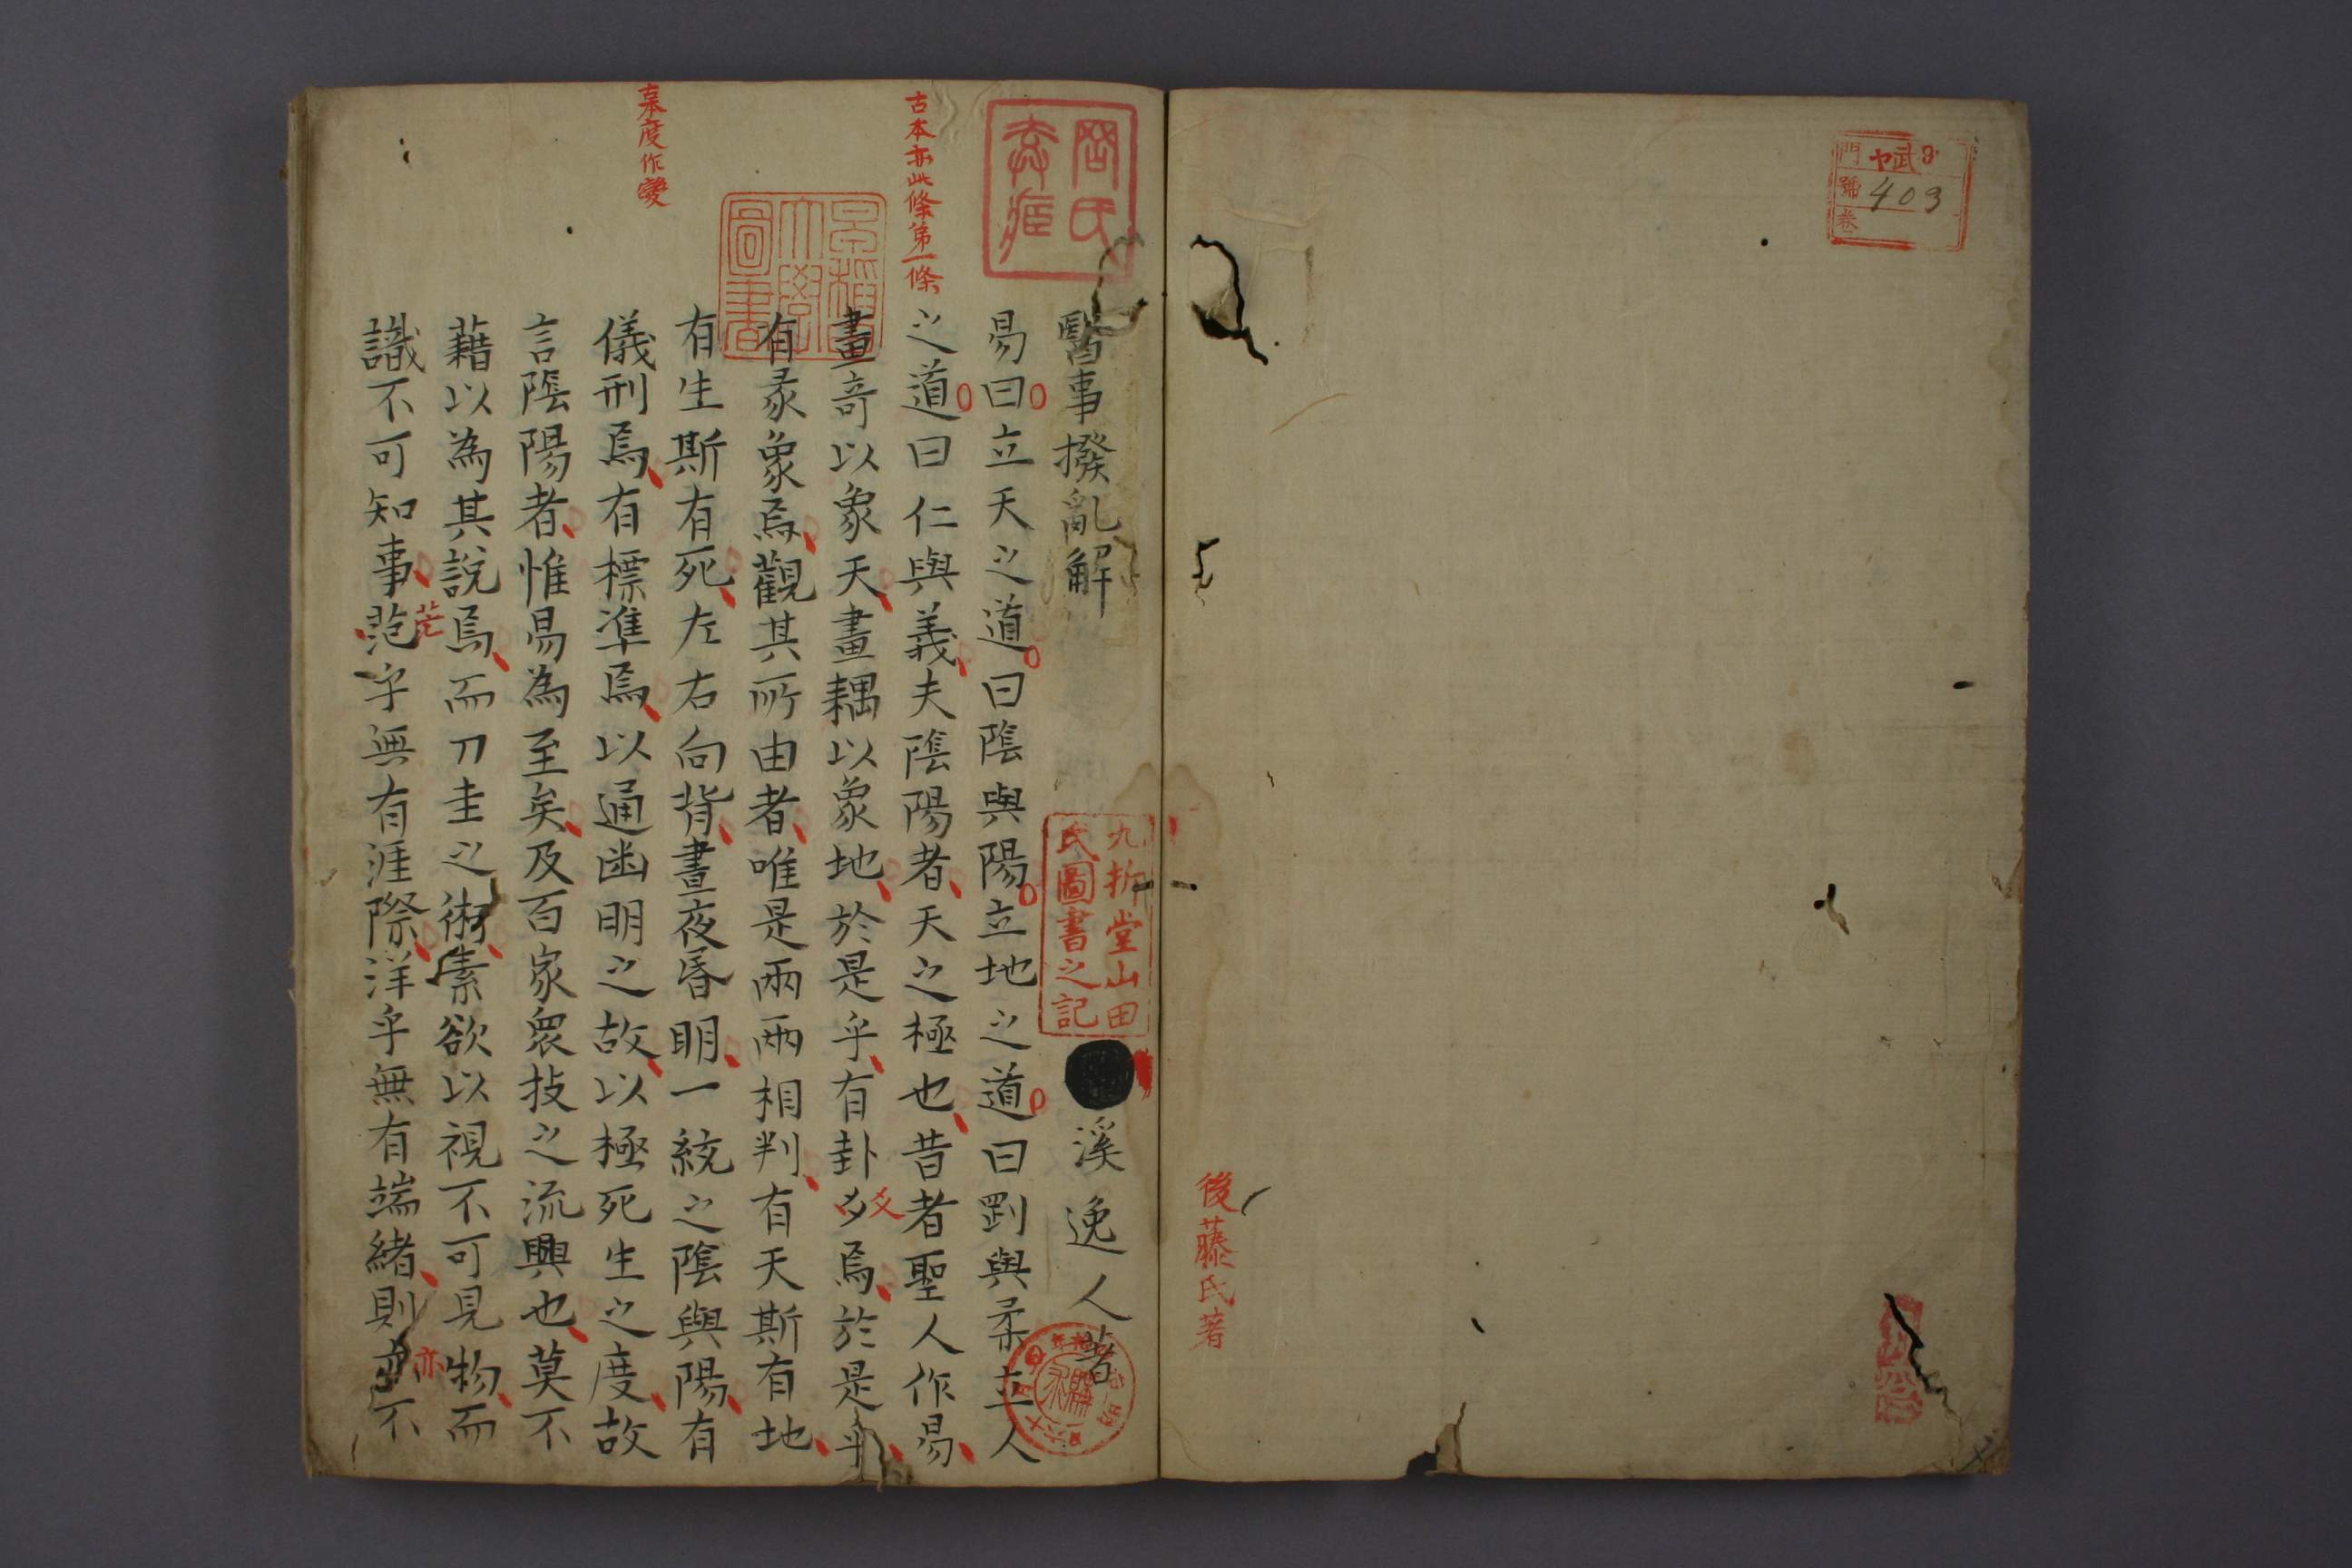 門 武
號 403
卷
後藤氏著
醫事撥亂解
溪逸人著
九折堂山田
氏圖書之記
易曰立天之道曰陰與陽立地之道曰剛與柔立人
古本亦此條第一條
之道曰仁與義夫陰陽者天之極也昔者聖人作易
畫奇以象天畫耦以象地於是乎有卦爻焉於是乎
爻
有彖象焉觀其所由者唯是兩兩相判有天斯有地
有生斯有死左右向背晝夜昏明一統之陰與陽有
古本度作變
儀刑焉有標準焉以通幽明之故以極死生之度故
言陰陽者惟易為至矣及百家衆技之流興也莫不
藉以為其說焉而刀圭之術素欲以視不可見物而
識不可知事范乎無有涯際洋乎無有端緒則亦不
茫
亦